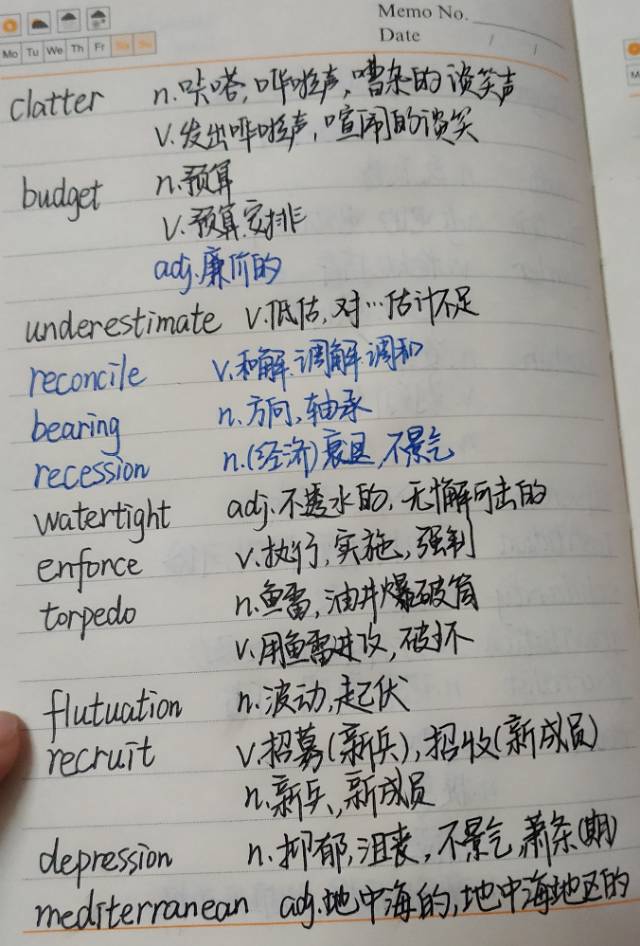 Memo No.
Mo Tu We Th Fr Sa Su
Date / /
clatter n.咔嗒,哗啦声,嘈杂的谈笑声
v.发出哗啦声,喧闹的谈笑
budget n.预算
v.预算.安排
adj.廉价的
underestimate v.低估,对…估计不足
reconcile v.和解.调解.调和
bearing n.方向,轴承
recession n.(经济)衰退,不景气
watertight adj.不透水的,无懈可击的
enforce v.执行,实施,强制
torpedo n.鱼雷,油井爆破筒
v.用鱼雷进攻,破坏
flutuation n.波动,起伏
recruit v.招募(新兵),招收(新成员)
n.新兵,新成员
depression n.抑郁,沮丧,不景气,萧条(期)
mediterranean adj.地中海的,地中海地区的